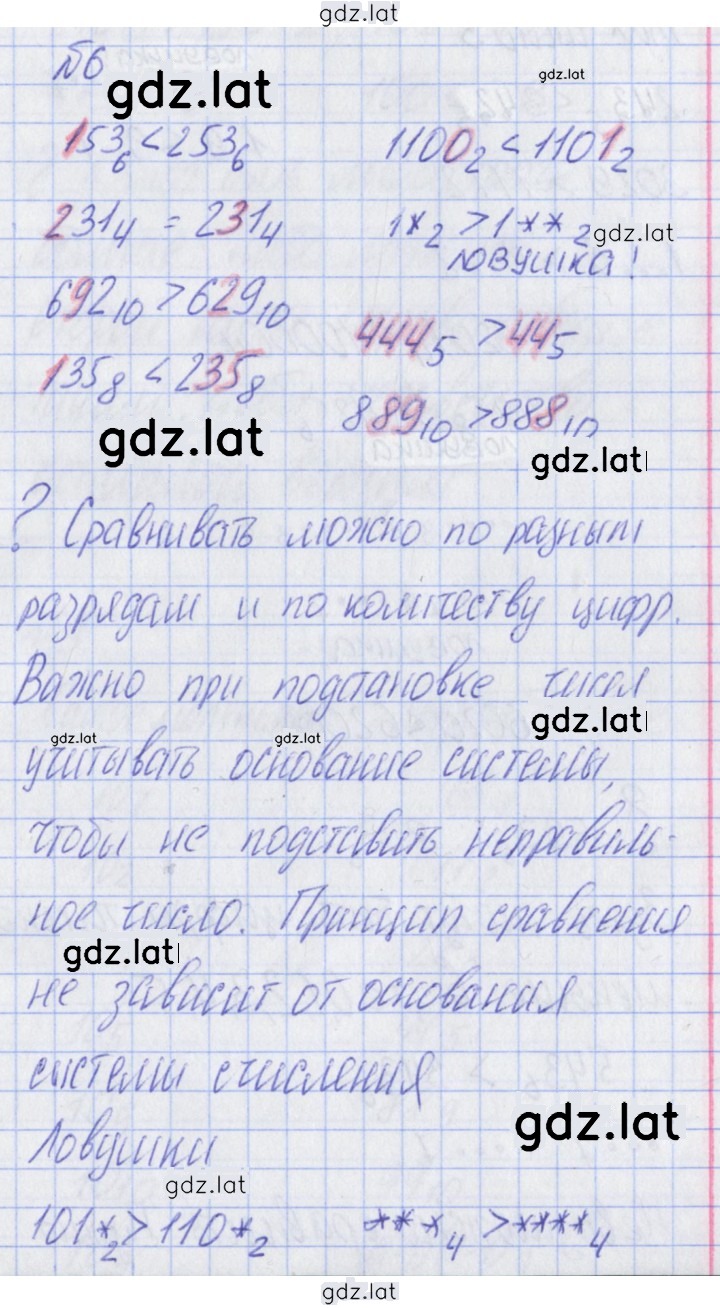 gdz.lat
№6
gdz.lat
gdz.lat
153₆ < 253₆
1100₂ < 1101₂
231₄ = 231₄
1*₂ > 1**₂
gdz.lat
ловушка!
692₁₀ > 629₁₀
444₅ > 44₅
135₈ < 235₈
889₁₀ > 888₁₀
gdz.lat
gdz.lat
? Сравнивать можно по разным
разрядам и по количеству цифр.
Важно при подстановке чисел
gdz.lat
gdz.lat
gdz.lat
учитывать основание системы,
чтобы не подставить неправиль-
ное число. Принцип сравнения
gdz.lat
не зависит от основания
системы счисления
gdz.lat
Ловушки
gdz.lat
101*₂ > 110*₂
***₄ > ****₄
gdz.lat